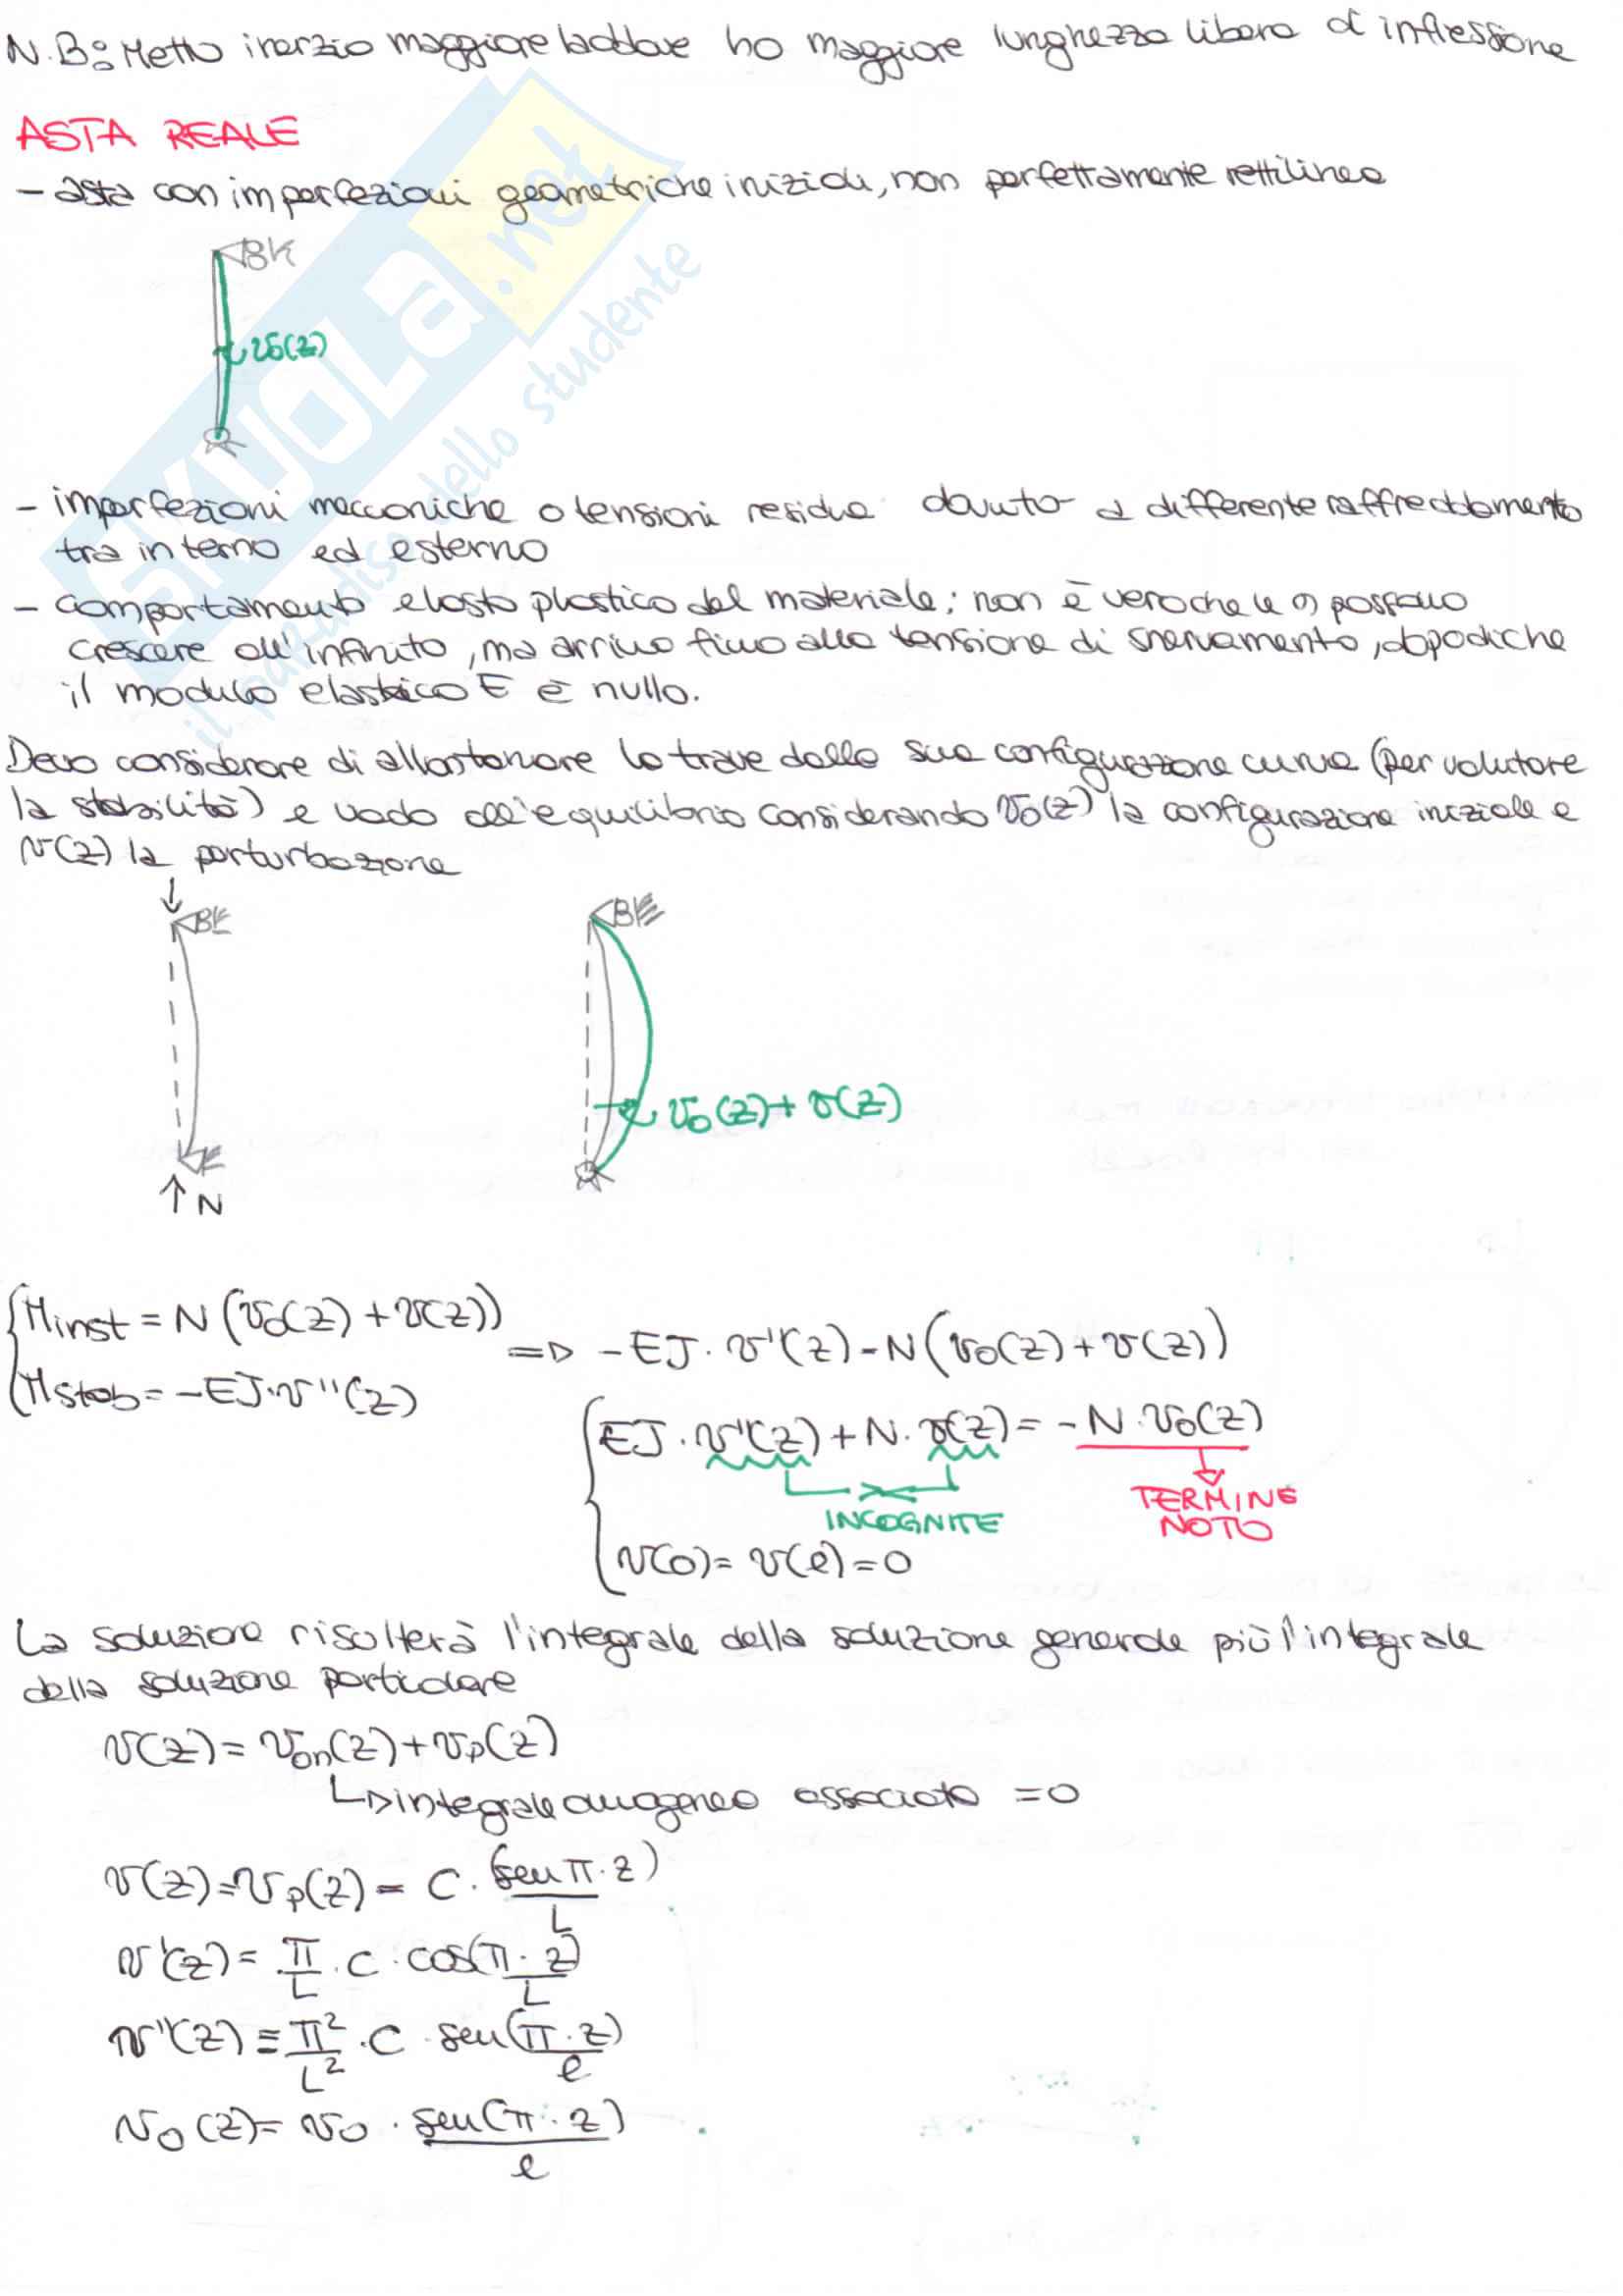 N.B: Metto inerzia maggiore laddove ho maggiore lunghezza libera d'inflessione
ASTA REALE
- asta con imperfezioni geometriche iniziali, non perfettamente rettilinea
v0(z)
- imperfezioni meccaniche o tensioni residue dovute a differente raffreddamento
tra interno ed esterno
- comportamento elasto plastico del materiale; non è vero che le σ possano
crescere all'infinito, ma arrivo fino alla tensione di snervamento, dopodiche
il modulo elastico E è nullo.
Devo considerare di allontanare la trave dalla sua configurazione curva (per valutare
la stabilità) e vado all'equilibrio considerando v0(z) la configurazione iniziale e
v(z) la perturbazione
N
v0(z) + v(z)
Minst = N (v0(z) + v(z))
Mstab = -EJ·v''(z)
=> -EJ · v''(z) = N(v0(z) + v(z))
EJ · v''(z) + N · v(z) = -N · v0(z)
INCOGNITE
TERMINE
NOTO
v(0) = v(l) = 0
La soluzione risulterà l'integrale della soluzione generale più l'integrale
della soluzione particolare
v(z) = von(z) + vp(z)
integrale omogeneo associato = 0
v(z) = vp(z) = C · (sen π · z)/L
v'(z) = π/L · C · cos(π · z)/L
v''(z) = π²/L² · C · sen(π · z)/l
v0(z) = v0 · sen(π · z)/l
SKUOLA.net
il paradiso dello studente